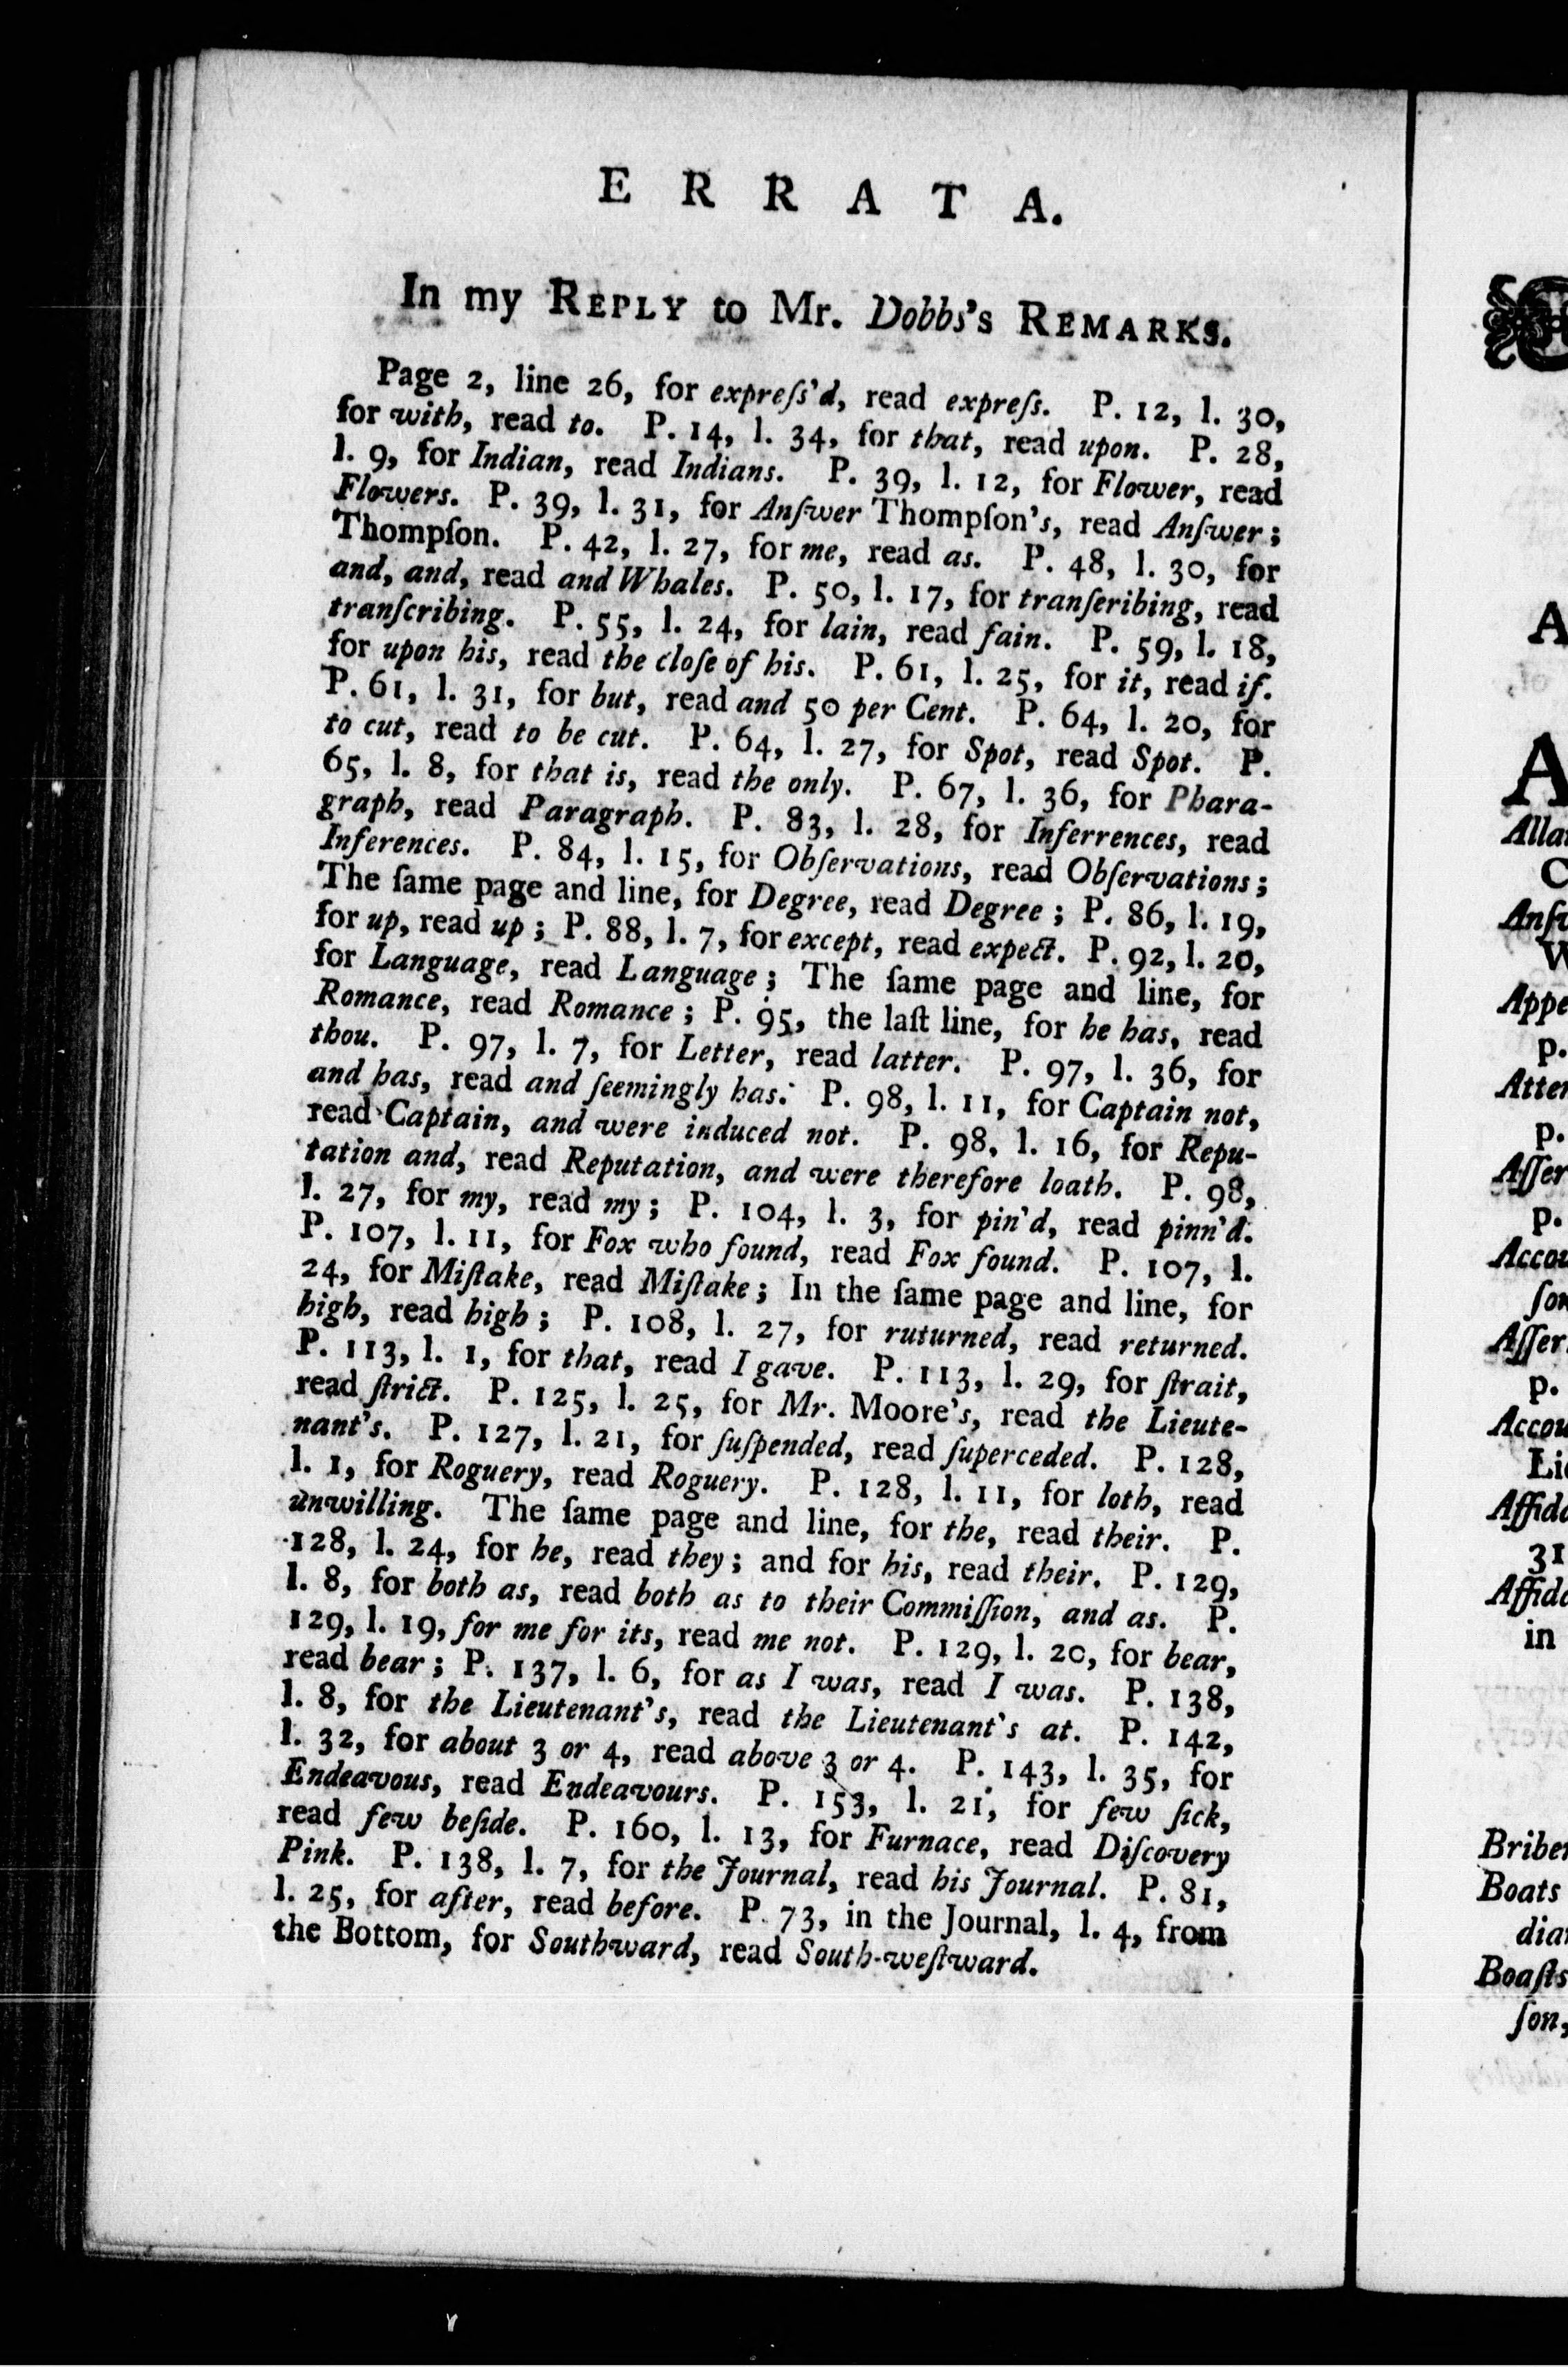 E R R A T A.
In my REPLY to Mr. Dobbs's REMARKS.
Page 2, line 26, for expreſs'd, read expreſs. P. 12, l. 30,
for with, read to. P. 14, l. 34, for that, read upon. P. 28,
l. 9, for Indian, read Indians. P. 39, l. 12, for Flower, read
Flowers. P. 39, l. 31, for Anſwer Thompſon's, read Anſwer;
Thompſon. P. 42, l. 27, for me, read as. P. 48, l. 30, for
and, and, read and Whales. P. 50, l. 17, for tranſeribing, read
tranſcribing. P. 55, l. 24, for lain, read fain. P. 59, l. 18,
for upon his, read the cloſe of his. P. 61, l. 25, for it, read if.
P. 61, l. 31, for but, read and 50 per Cent. P. 64, l. 20, for
to cut, read to be cut. P. 64, l. 27, for Spot, read Spot. P.
65, l. 8, for that is, read the only. P. 67, l. 36, for Phara-
graph, read Paragraph. P. 83, l. 28, for Inferrences, read
Inferences. P. 84, l. 15, for Obſervations, read Obſervations;
The ſame page and line, for Degree, read Degree; P. 86, l. 19,
for up, read up; P. 88, l. 7, for except, read expect. P. 92, l. 20,
for Language, read Language; The ſame page and line, for
Romance, read Romance; P. 95, the laſt line, for he has, read
thou. P. 97, l. 7, for Letter, read latter. P. 97, l. 36, for
and has, read and ſeemingly has. P. 98, l. 11, for Captain not,
read Captain, and were induced not. P. 98, l. 16, for Repu-
tation and, read Reputation, and were therefore loath. P. 98,
l. 27, for my, read my; P. 104, l. 3, for pin'd, read pinn'd.
P. 107, l. 11, for Fox who found, read Fox found. P. 107, l.
24, for Miſtake, read Miſtake; In the ſame page and line, for
high, read high; P. 108, l. 27, for ruturned, read returned.
P. 113, l. 1, for that, read I gave. P. 113, l. 29, for ſtrait,
read ſtrict. P. 125, l. 25, for Mr. Moore's, read the Lieute-
nant's. P. 127, l. 21, for ſuſpended, read ſuperceded. P. 128,
l. 1, for Roguery, read Roguery. P. 128, l. 11, for loth, read
unwilling. The ſame page and line, for the, read their. P.
128, l. 24, for he, read they; and for his, read their. P. 129,
l. 8, for both as, read both as to their Commiſſion, and as. P.
129, l. 19, for me for its, read me not. P. 129, l. 20, for bear,
read bear; P. 137, l. 6, for as I was, read I was. P. 138,
l. 8, for the Lieutenant's, read the Lieutenant's at. P. 142,
l. 32, for about 3 or 4, read above 3 or 4. P. 143, l. 35, for
Endeavous, read Endeavours. P. 153, l. 21, for few ſick,
read few beſide. P. 160, l. 13, for Furnace, read Diſcovery
Pink. P. 138, l. 7, for the Journal, read his Journal. P. 81,
l. 25, for after, read before. P. 73, in the Journal, l. 4, from
the Bottom, for Southward, read South-weſtward.
A
A
C
W
Appe
p.
p.
p.
p.
Lie
31
in
Boats
ſon,